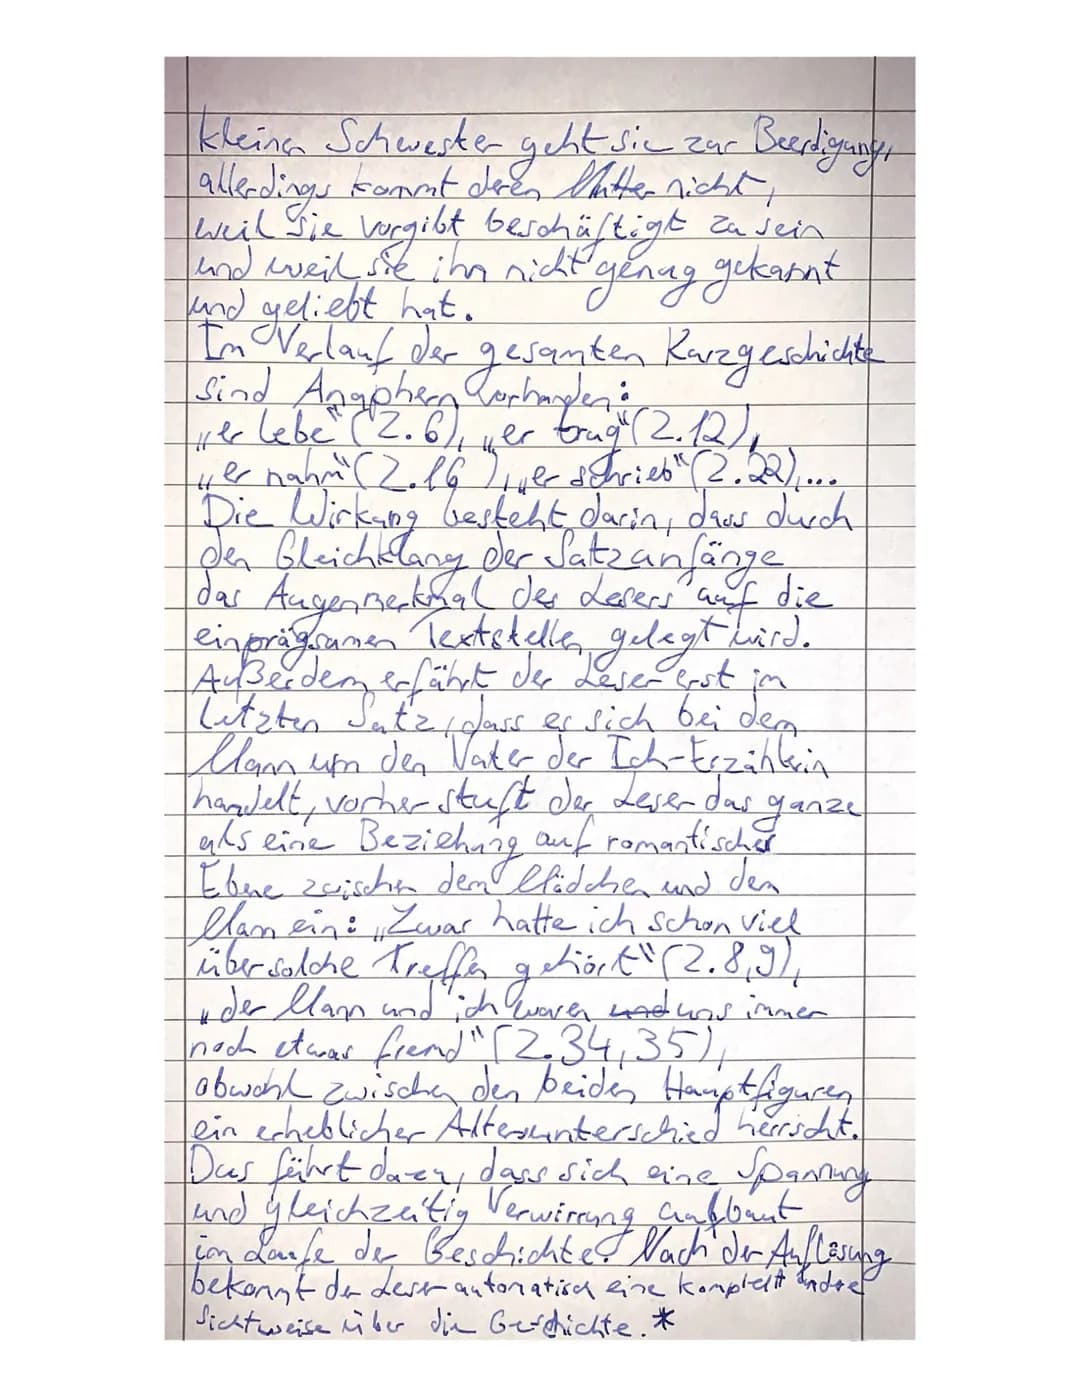 kleinen Schwester geht sie zur Beerdigung,
allerdings kommt deren Mutter nicht,
weil sie vorgibt beschäftigt zu sein
und weil sie ihn nicht genug gekannt
und geliebt hat.
Im Verlauf der gesamten Kurzgeschichte
sind Anaphern vorhanden:
„er lebe" (Z.6), „er trug" (Z.12),
„er nahm" (Z.16), „er schrieb" (Z.22),...
Die Wirkung besteht darin, dass durch
den Gleichklang der Satzanfänge
das Augenmerkmal des Lesers auf die
einprägsamen Textstellen gelegt wird.
Außerdem erfährt der Leser erst im
letzten Satz, dass es sich bei dem
Mann um den Vater der Ich-Erzählerin
handelt, vorher stuft der Leser das ganze
als eine Beziehung auf romantischer
Ebene zwischen dem Mädchen und dem
Mann ein: „Zwar hatte ich schon viel
über solche Treffen gehört" (Z.8,9),
„der Mann und ich waren und uns immer
noch etwas fremd" (Z.34,35),
obwohl zwischen den beiden Hauptfiguren
ein erheblicher Altersunterschied herrscht.
Das führt dazu, dass sich eine Spannung
und gleichzeitig Verwirrung aufbaut
im Laufe der Geschichte. Nach der Auflösung
bekommt der Leser automatisch eine komplett andre
Sichtweise über die Geschichte.*